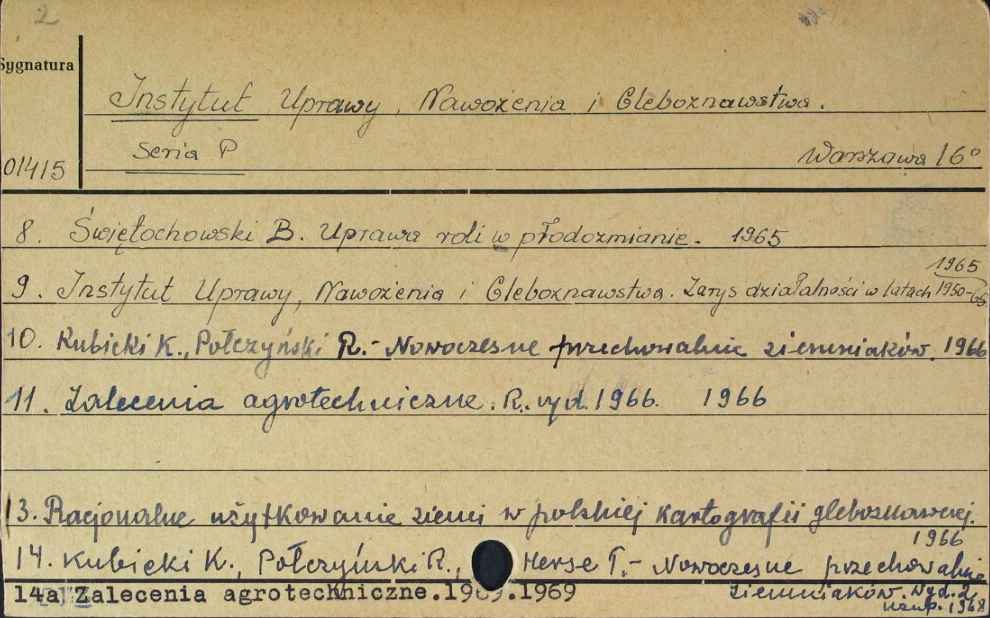 2
Sygnatura
Instytut Uprawy, Nawożenia i Gleboznawstwa.
01415
Seria P
Warszawa 16°
8. Świętochowski B. Uprawa roli w płodozmianie. 1965
1965
9. Instytut Uprawy, Nawożenia i Gleboznawstwa. Zarys działalności w latach 1950-65
10. Kubicki K., Połczyński R.- Nowoczesne przechowalnie ziemniaków. 1966
11. Zalecenia agrotechniczne. R. wyd. 1966. 1966
13. Racjonalne użytkowanie ziemi w polskiej kartografii gleboznawczej.
1966
14. Kubicki K., Połczyński R., Herse T.- Nowoczesne przechowalnie
ziemniaków. Wyd. 2
uzup. 1968
14a Zalecenia agrotechniczne.1969.1969